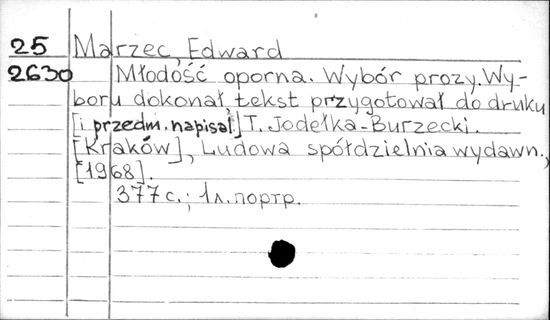 25 Marzec, Edward
2630 Młodość oporna. Wybór prozy. Wy-
boru dokonał, tekst przygotował do druku
[i przedm. napisał] T. Jodełka-Burzecki.
[Kraków], Ludowa spółdzielnia wydawn.,
[1968].
377 с.; 1л. портр.